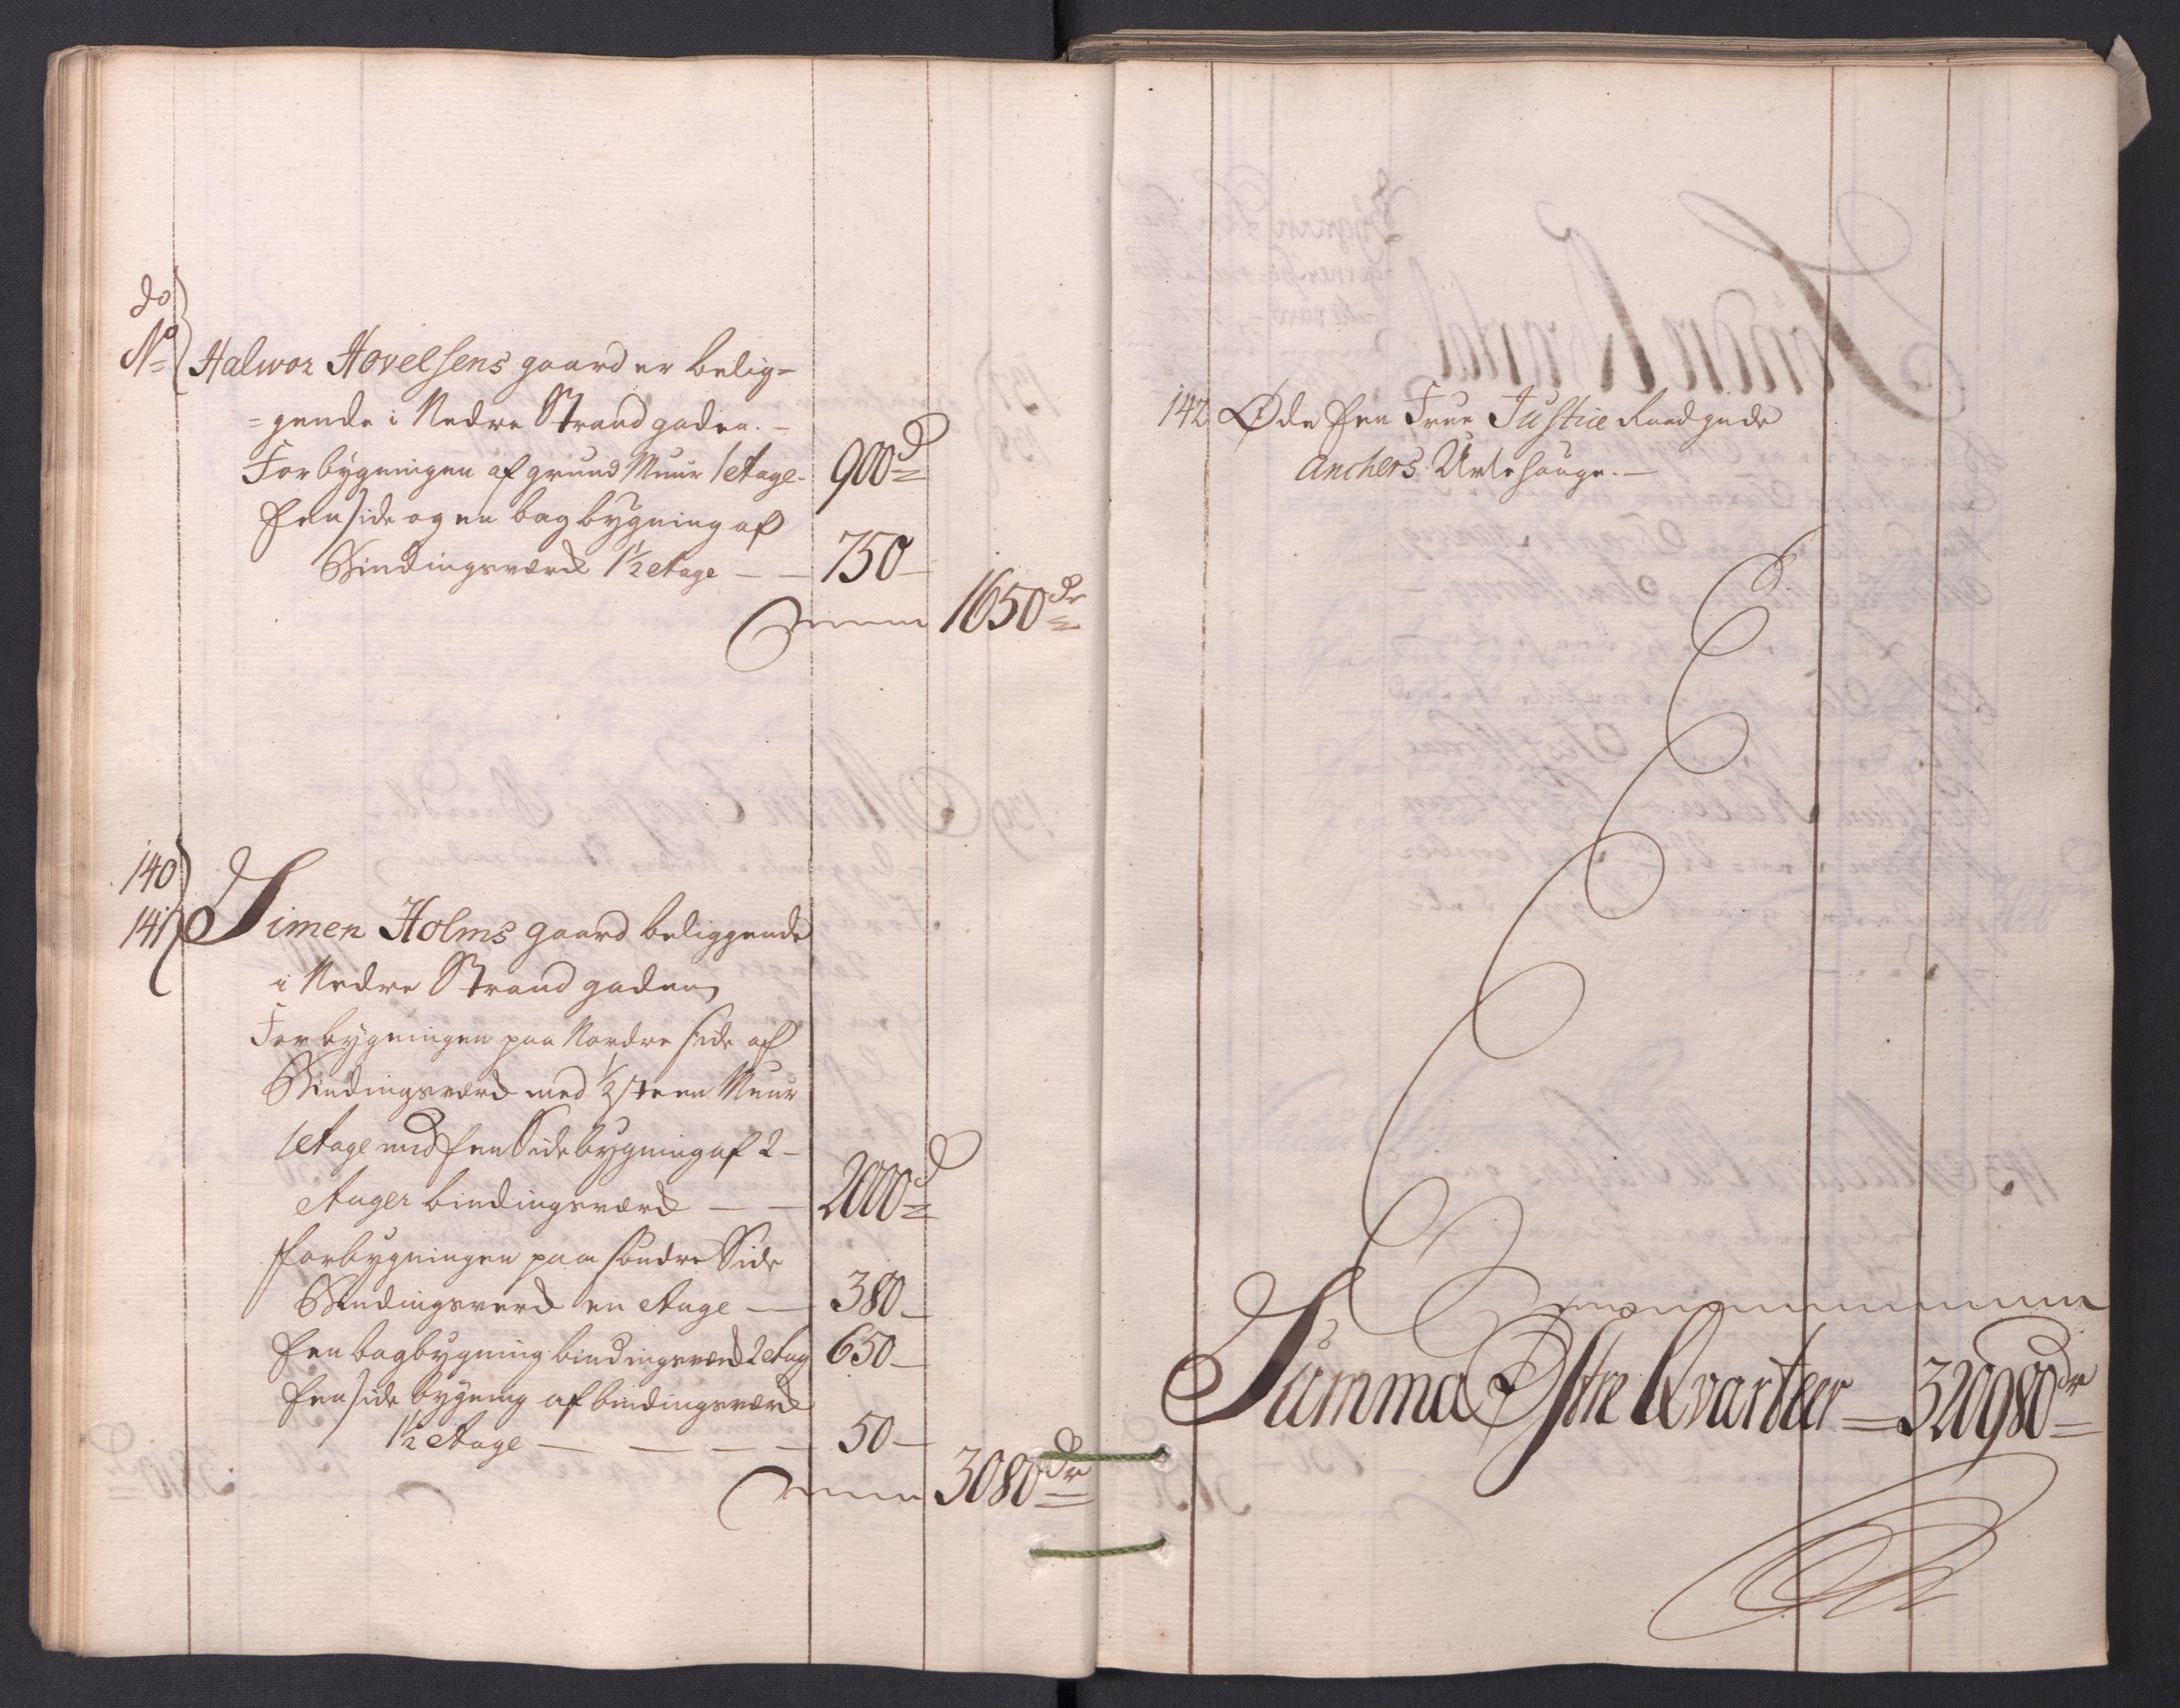 do
No Halwor Hovelsens gaard er belig-
=gende i Nedre Strand gaden. -
Forbygningen af grund Muur 1 etage - 900 d
Een side og en bag bygning af
Bindingsværk 1½ etage - - 750 -
Summa 1650 dr
140
141 Simen Holms gaard beliggende
i Nedre Strand gaden
Forbygningen paa Nordre side af
Bindingsværk med ½ steen Muur
1 etage med Een Sidebygning af 2 -
etager bindingsværk - - 2000 d
forbygningen paa söndre Side
Bindingsverk en etage - 380 -
Een bagbygning bindingsværk 2 etag 650 -
Een side bygning af bindingsværk
1½ etage - - - - 50 -
Summa 3080 dr
142 Øde Een Frue Justice Raad
Anchers Urtehauge. -
Summa Østre Qvarteer = 320980 dr